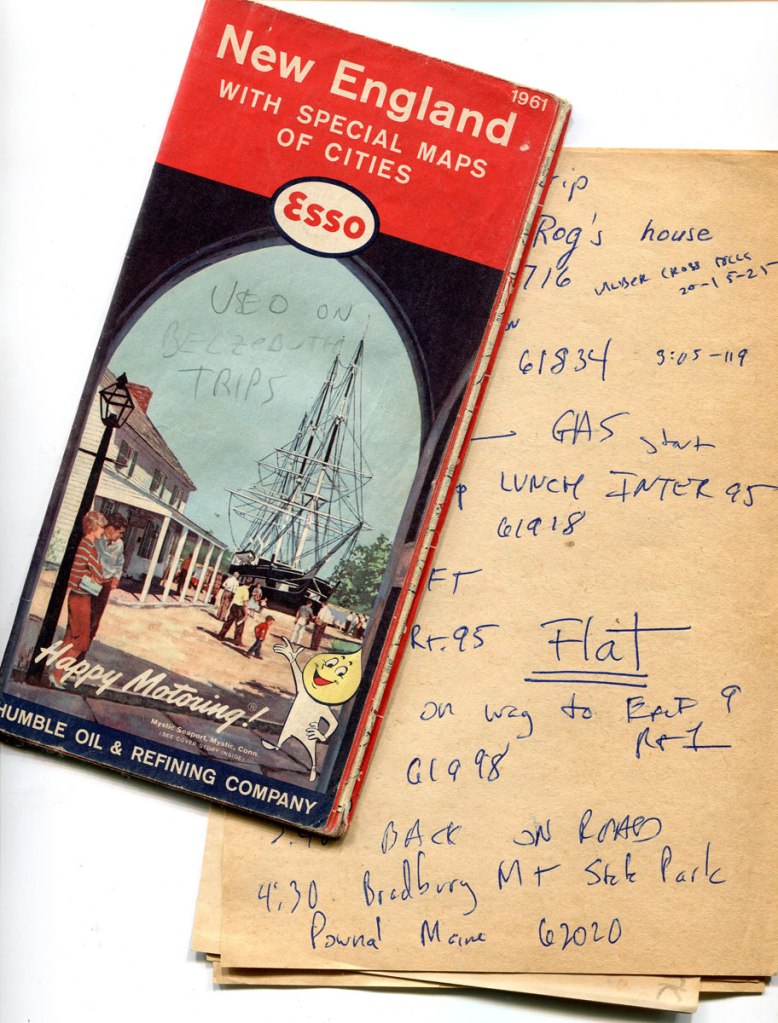 New England
1961
WITH SPECIAL MAPS
OF CITIES
Esso
USED ON
BELZEBUTH
TRIPS
Happy Motoring!®
Mystic Seaport, Mystic, Conn.
(SEE COVER STORY INSIDE)
HUMBLE OIL & REFINING COMPANY
rip
Rog's house
716
CROSS
20-1 5-25
61834 3:05-119
→ GAS start
p LUNCH INTER 95
61918
FT
Rt. 95 Flat
on way to Exit 9
Rt 1
61998
BACK ON ROAD
4:30 Bradbury Mt State Park
Pownal Maine 62020